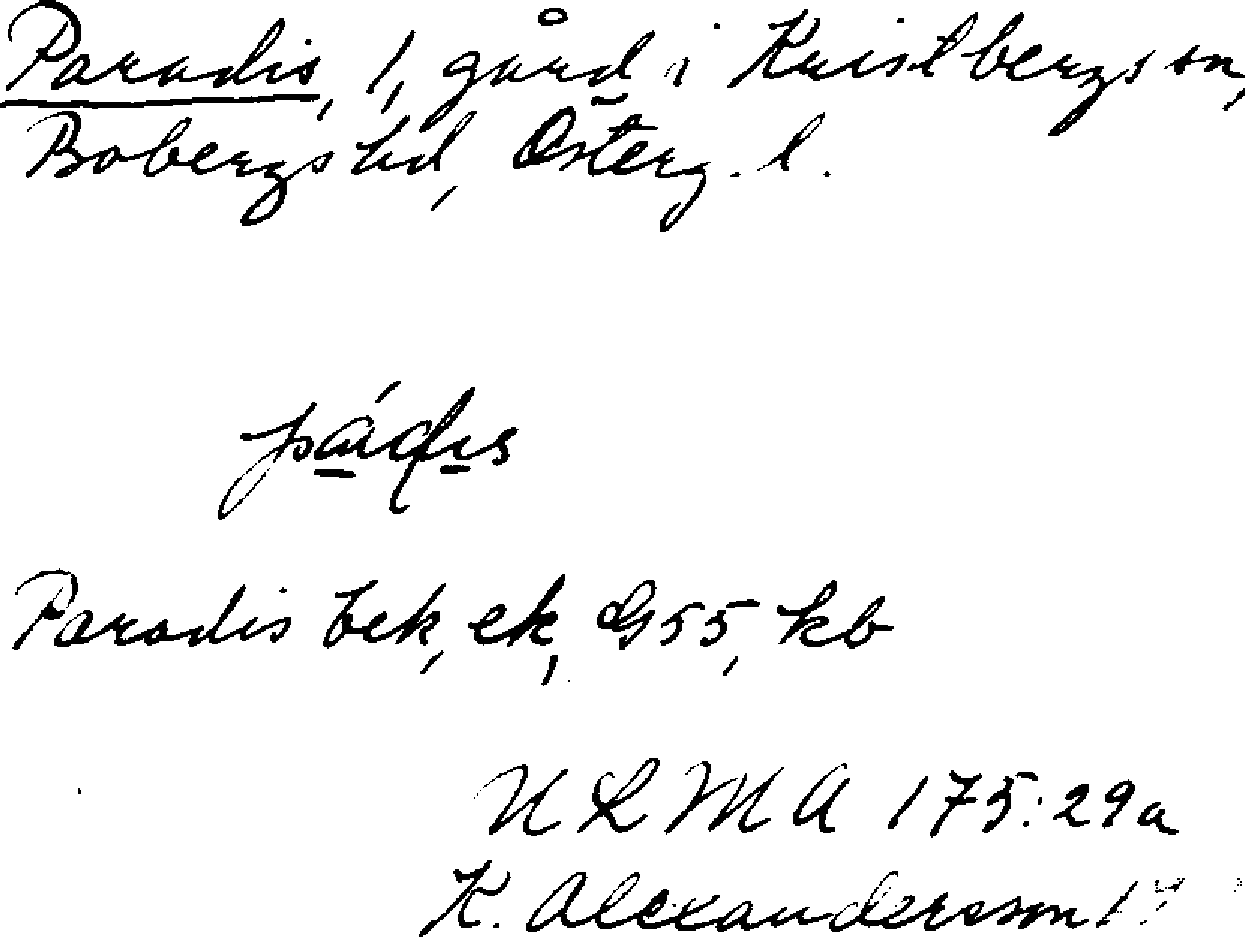 Paradis, 1, gård i Kristbergs sn,
Bobergs hd, Österg. l.
Paradis bek, ek, G55, kb
ULMA 175:29a
K. Alexandersson